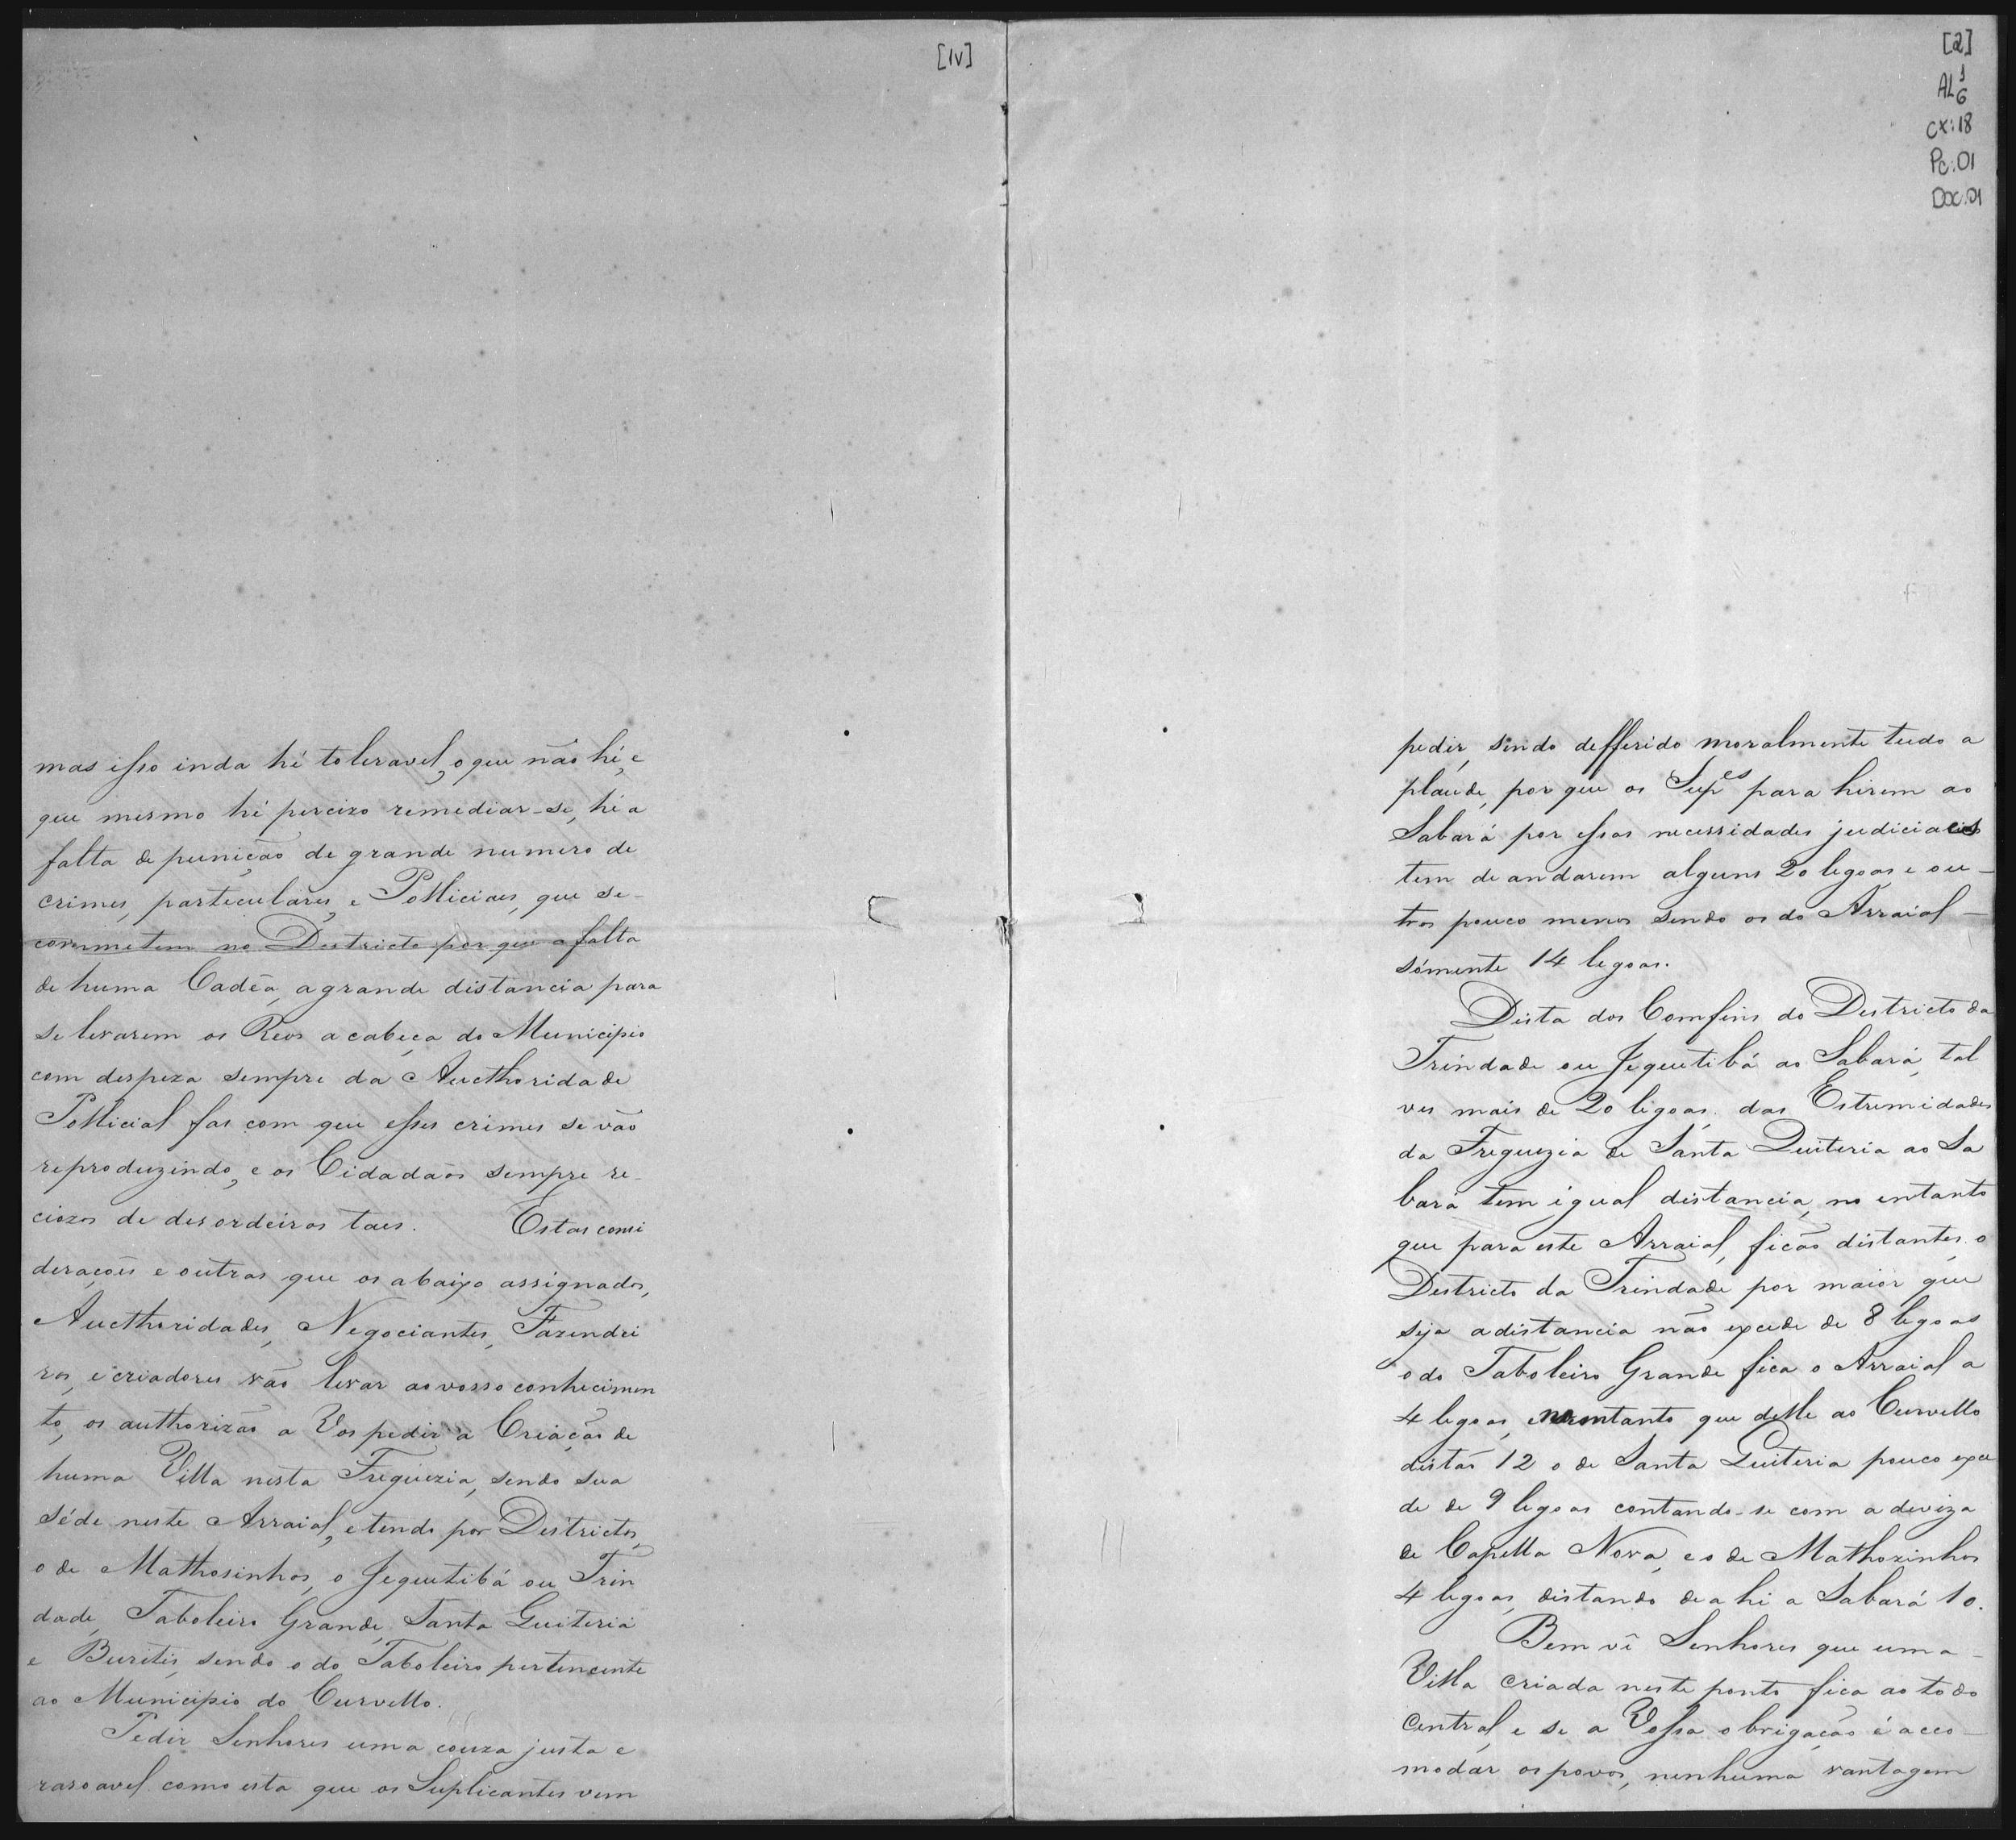 [1v]
mas isso inda hé toleravel, o que não hé, e
que mesmo hé percizo remediar-se, hé a
falta de punição de grande numero de
crimes, particulares, e Polliciaes, que se-
commetem no Destricto por que a falta
de huma Cadêa, a grande distancia para
se levarem os Reos a cabeça do Municipio
com despeza sempre da Aucthoridade
Pollicial fas com que esses crimes se vão
reproduzindo, e os Cidadaõs sempre re-
ciozos de desordeiros taes. Estas consi
derações e outras que os abaixo assignados,
Aucthoridades, Negociantes, Fazendei
ros, e criadores vão levar ao vosso conhecimen
to, os authorizão a Vos pedir a Criação de
huma Villa nesta Freguezia, sendo sua
séde neste Arraial, e tendo por Districtos,
o de Mathosinhos, o Jequitibá ou Trin
dade, Taboleiro Grande, Santa Quiteria
e Buritis, sendo o do Taboleiro pertencente
ao Municipio do Curvello.
Pedir Senhores uma couza justa e
rasoavel como esta que os Suplicantes vem
[2]
AL 1
6
CX:18
Pc:01
DOC:01
pedir, sendo defferido moralmente tudo a
plaude, por que os Sup.es para hirem ao
Sabará por essas necessidades judiciaes
tem de andarem alguns 20 legoas e ou-
tros pouco menos sendo os do Arraial-
sómente 14 legoas.
Dista dos Comfins do Destricto da
Trindade ou Jequitibá ao Sabará, tal
ves mais de 20 legoas. das Estremidades
da Freguezia de Santa Quiteria ao Sa
bará tem igual distancia, no entanto
que para este Arraial, ficão distantes, o
Destricto da Trindade por maior que
seja a distancia não excede de 8 legoas
o do Taboleiro Grande fica o Arraial a
4 legoas, noemtanto que delle ao Curvello
distão 12 o de Santa Quiteria pouco exce
de de 9 legoas contando-se com a deviza
de Capella Nova, e o de Mathozinhos
4 legoas, distando de a hi a Sabará 10.
Bem vê Senhores que uma-
Villa criada neste ponto fica ao todo
Central, e se a Vossa obrigação é acco-
modar os povos, nenhuma vantagem